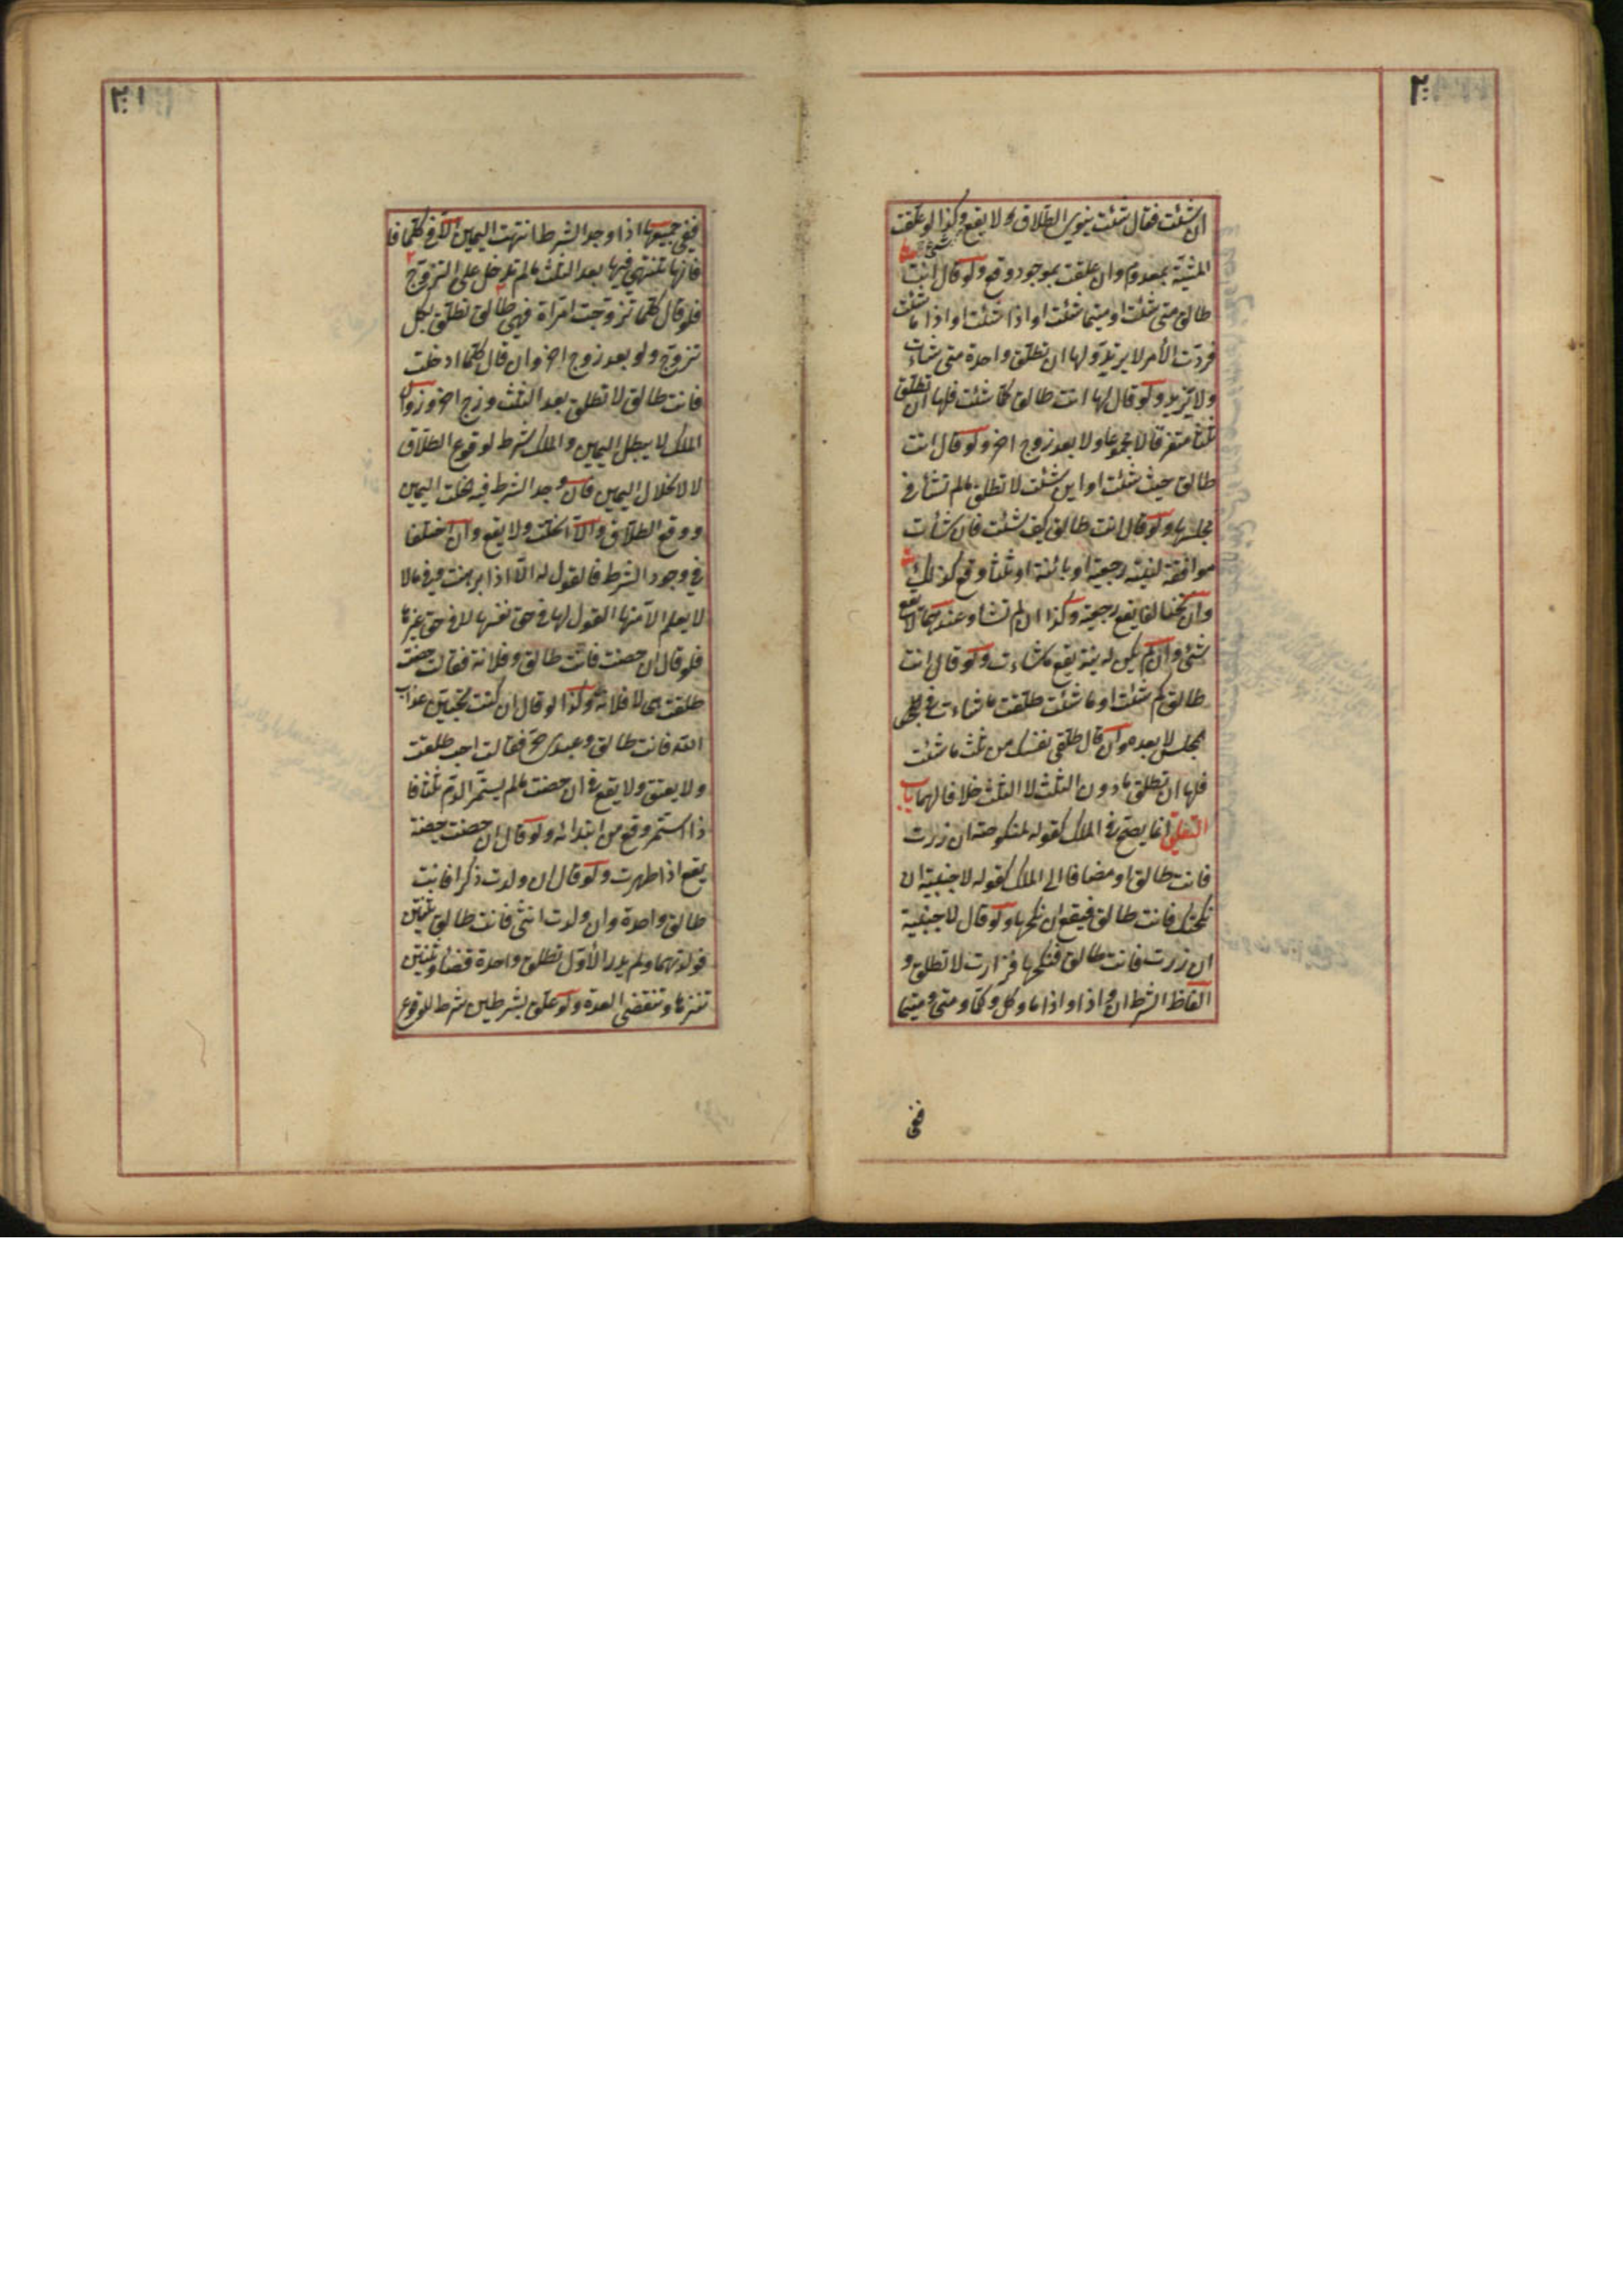 ان شئت فقال شئت ينوي الطلاق ولا يقع وكذا لو علقت
المشية بمعدوم وان علقت بموجود وقع ولو قال انت
طالق متى شئت او متيما شئت او اذا شئت او اذا ما شئت
فردت الأمر لا يرتد ولها ان تطلق واحدة متى شاءت
ولا تزيد ولو قال لها انت طالق كلما شئت فلها ان تطلق
ثلثا متفرقا لا مجموعا ولا بعد زوج اخر ولو قال انت
طالق حيث شئت او اين شئت لا تطلق ما لم تشأ في
مجلسها ولو قال انت طالق كيف شئت فان شأت
موافقة لنيته رجعية او بائنة او ثلثا وقع كذلك
وان تخالفا يقع رجعية وكذا ان لم تشاء وعندهما لا يقع
شئ وان لم يكن له نية يقع ما شاءت ولو قال انت
طالق كم شئت او ما شئت طلقت ما شاءت في
المجلس لا بعده وان قال طلقي نفسك من ثلث ما شئت
فلها ان تطلق ما دون الثلث لا الثلث خلافا لهما باب
التعليق انما يصح في الملك كقوله لمنكوحته ان زرت
فانت طالق او مضافا الى الملك كقوله لاجنبية ان
نكحتك فانت طالق فيقع ان نكحها ولو قال لاجنبية
ان زرت فانت طالق فنكحها فزارت لا تطلق و
الفاظ الشرط ان و اذا و اذا ما و كل و كلما و متى و متيما
ففي
ففي جميعها اذا وجد الشرط انتهت اليمين الا في كلما فا
فانها تنتهي فيها بعد الثلث ما لم تدخل على التزوج
فلو قال كلما تزوجت امرأة فهي طالق تطلق بكل
تزوج ولو بعد زوج اخر وان قال كلما دخلت
فانت طالق لا تطلق بعد الثلث وزوج اخر وزوال
الملك لا يبطل اليمين والملك شرط لوقوع الطلاق
لا لانحلال اليمين فان وجد الشرط فيه انحلت اليمين
ووقع الطلاق والا انحلت ولا يقع وان اختلفا
في وجود الشرط فالقول له الا اذا برهنت وفي ما لا
لا يعلم الا منها القول لها في حق نفسها لا في حق غيرها
فلو قال ان حضت فانت طالق وفلانة فقالت حضت
طلقت هي لا فلانة وكذا لو قال ان كنت تحبين عذاب
الله فانت طالق وعبدي حر فقالت احب طلقت
ولا يعتق ولا يقع في ان حضت ما لم يستمر الدم ثلثا فا
ذا استمر وقع من ابتدائه ولو قال ان حضت حيضة
يقع اذا طهرت ولو قال ان ولدت ذكرا فانت
طالق واحدة وان ولدت انثى فانت طالق ثنتين
فولدتهما ولم يدر الأول تطلق واحدة قضاء وثنتين
تنزها وتنقضي العدة ولو علق بشرطين شرط للوقوع